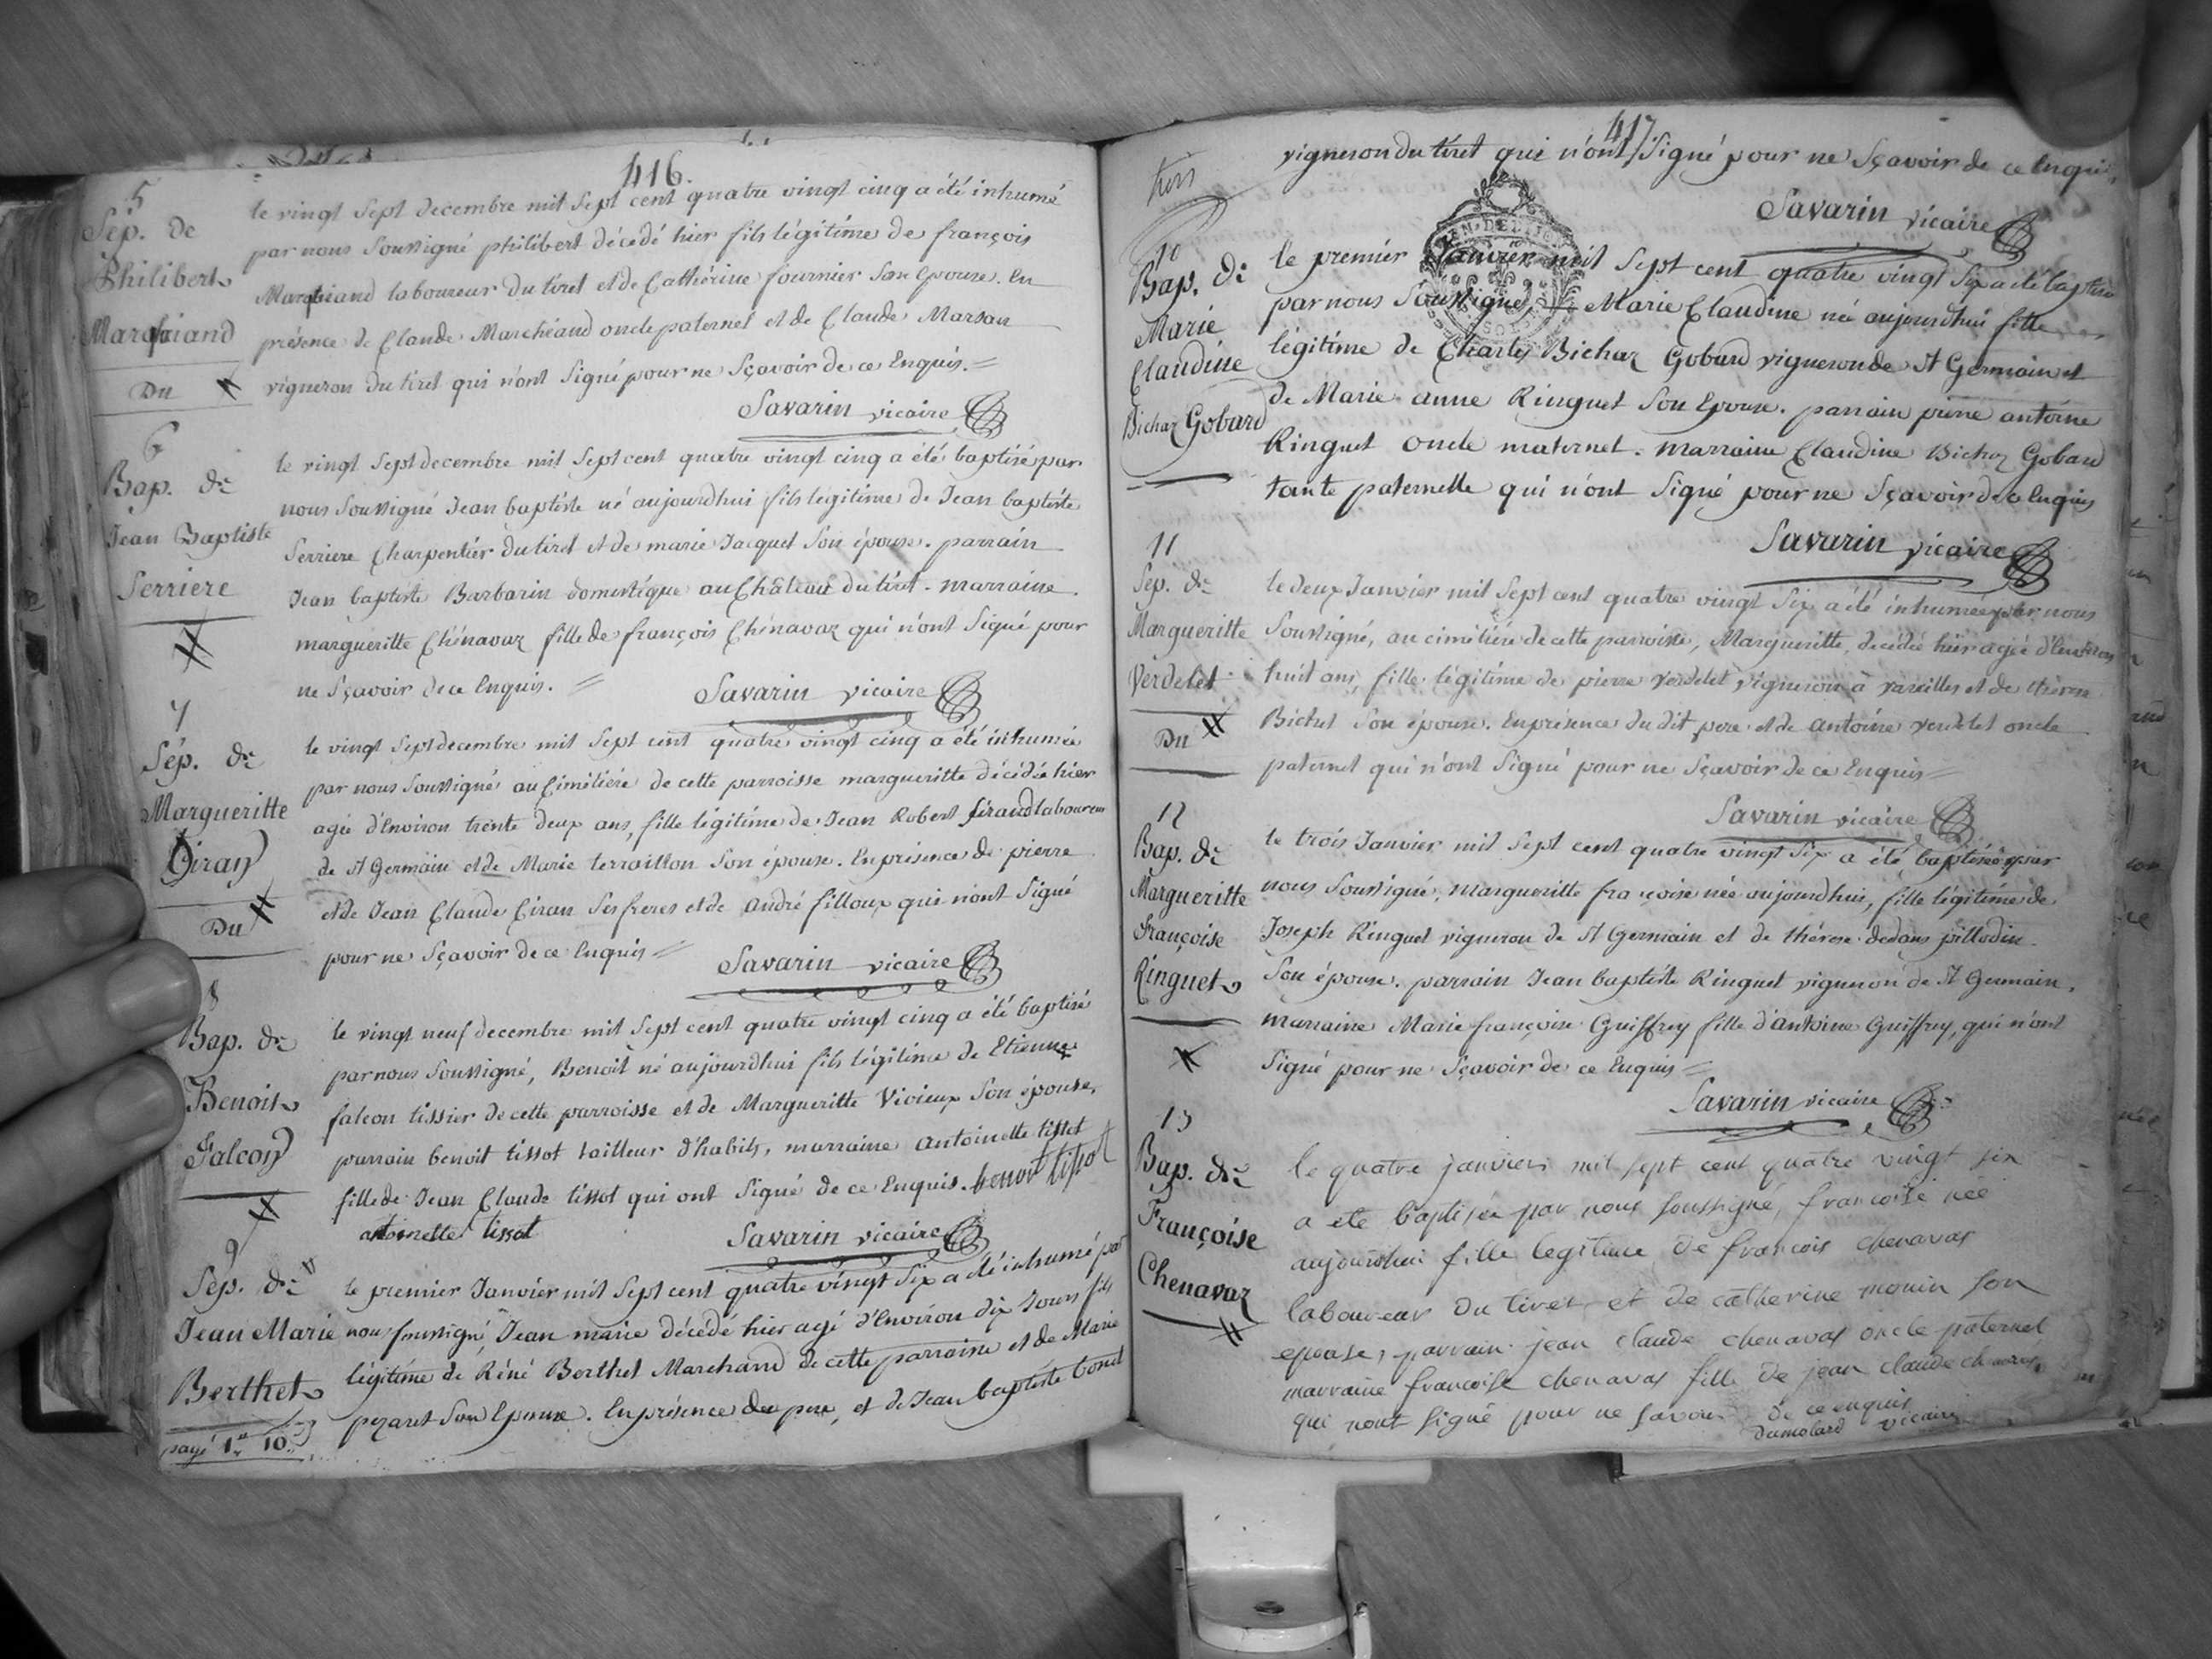 416.
5
Sép. de
Philibert
Marchand
Du
le vingt Sept decembre mil Sept cent quatre vingt cinq a été inhumé
par nous Soussigné philibert décédé hier fils légitime de françois
laboureur du tiret et de Catherine fournier Son Epouse. En
présence de Claude Marchand oncle paternel et de Claude Marsan
vigneron du tiret qui n'ont Signé pour ne Sçavoir de ce Enquis. =
Savarin vicaire
6
Bap. de
Jean Baptiste
Serriere
le vingt Sept decembre mil Sept cent quatre vingt cinq a été baptisé par
nous Soussigné Jean baptiste né aujourdhui fils légitime de Jean baptiste
Serriere Charpentier du tiret et de marie Jacquet Son épouse. parrain
Jean baptiste Barbarin domestique au Château du tiret. marraine
margueritte Chénavaz fille de françois Chénavaz qui n'ont Signé pour
ne Sçavoir de ce Enquis. =
Savarin vicaire
7
Sép. de
Margueritte
Ciran
Du
le vingt Sept decembre mil Sept cent quatre vingt cinq a été inhumée
par nous Soussigné au Cimétiére de cette parroisse margueritte décédée hier
agée d'Environ trente deux ans, fille légitime de Jean Robert laboureur
de St Germain et de Marie terraillon Son épouse. En présence de pierre
et de Jean Claude Ciran Ses freres et de andré filloux qui n'ont Signé
pour ne Sçavoir de ce Enquis =
Savarin vicaire
8
Bap. de
Benoit
Falcon
le vingt neuf decembre mil Sept cent quatre vingt cinq a été baptisé
par nous Soussigné, Benoit né aujourdhui fils légitime de Etienne
falcon tissier de cette parroisse et de Margueritte Vivieux Son épouse,
parrain benoit tissot tailleur d'habits, marraine antoinette tissot
fille de Jean Claude tissot qui ont Signé de ce Enquis. benoit tissot
antoinette tissot
Savarin vicaire
9
Sép. de
Jean Marie
Berthet
le premier Janvier mil Sept cent quatre vingt Six a été inhumé par
nous soussigné, Jean marie décédé hier agé d'Environ dix Jours fils
légitime de Réné Berthet Marchand de cette parroisse et de Marie
Son Epouse. En présence du pere, et de Jean baptiste
417.
vigneron du tiret qui n'ont Signé pour ne Sçavoir de ce Enquis,
Savarin vicaire
10
Bap. de
Marie
Claudine
Bichaz Gobard
le premier Janvier mil Sept cent quatre vingt Six a été baptisée
par nous Soussigné, Marie Claudine née aujourdhui fille
légitime de Charles Bichaz Gobard vigneron de St Germain et
de Marie anne Ringuet Son Epouse. parrain pierre antoine
Ringuet oncle maternel. marraine Claudine Bichaz Gobard
tante paternelle qui n'ont Signé pour ne Sçavoir de ce Enquis
Savarin vicaire
11
Sép. de
Margueritte
Verdelet
Du
le deux Janvier mil Sept cent quatre vingt Six a été inhumée par nous
Soussigné, au cimétiére de cette parroisse, Margueritte décédée hier agée d'Environ
huit ans, fille légitime de pierre Verdelet vigneron à vareilles et de thérese
Bichet Son épouse. En présence du dit pere et de antoine verdelet oncle
paternel qui n'ont Signé pour ne Sçavoir de ce Enquis =
Savarin vicaire
12
Bap. de
Margueritte
Françoise
Ringuet
le trois Janvier mil Sept cent quatre vingt Six a été baptisée par
nous Soussigné, margueritte françoise née aujourdhui, fille légitime de
Joseph Ringuet vigneron de St Germain et de thérese pillodin
Son épouse. parrain Jean baptiste Ringuet vigneron de St Germain,
marraine Marie françoise Guiffrey fille d'antoine Guiffrey, qui n'ont
Signé pour ne Sçavoir de ce Enquis =
Savarin vicaire
13
Bap. de
Françoise
Chenavaz
le quatre janvier mil sept cent quatre vingt six
a eté baptisée par nous soussigné, francoise née
aujourdhui fille legitime de francois chenavas
laboureur du tiret, et de catherine monin son
epouse, parrain jean claude chenavas oncle paternel
marraine francoise chenavas fille de jean claude chenavas
qui nont signé pour ne savoir de ce enquis
Dumolard vicaire